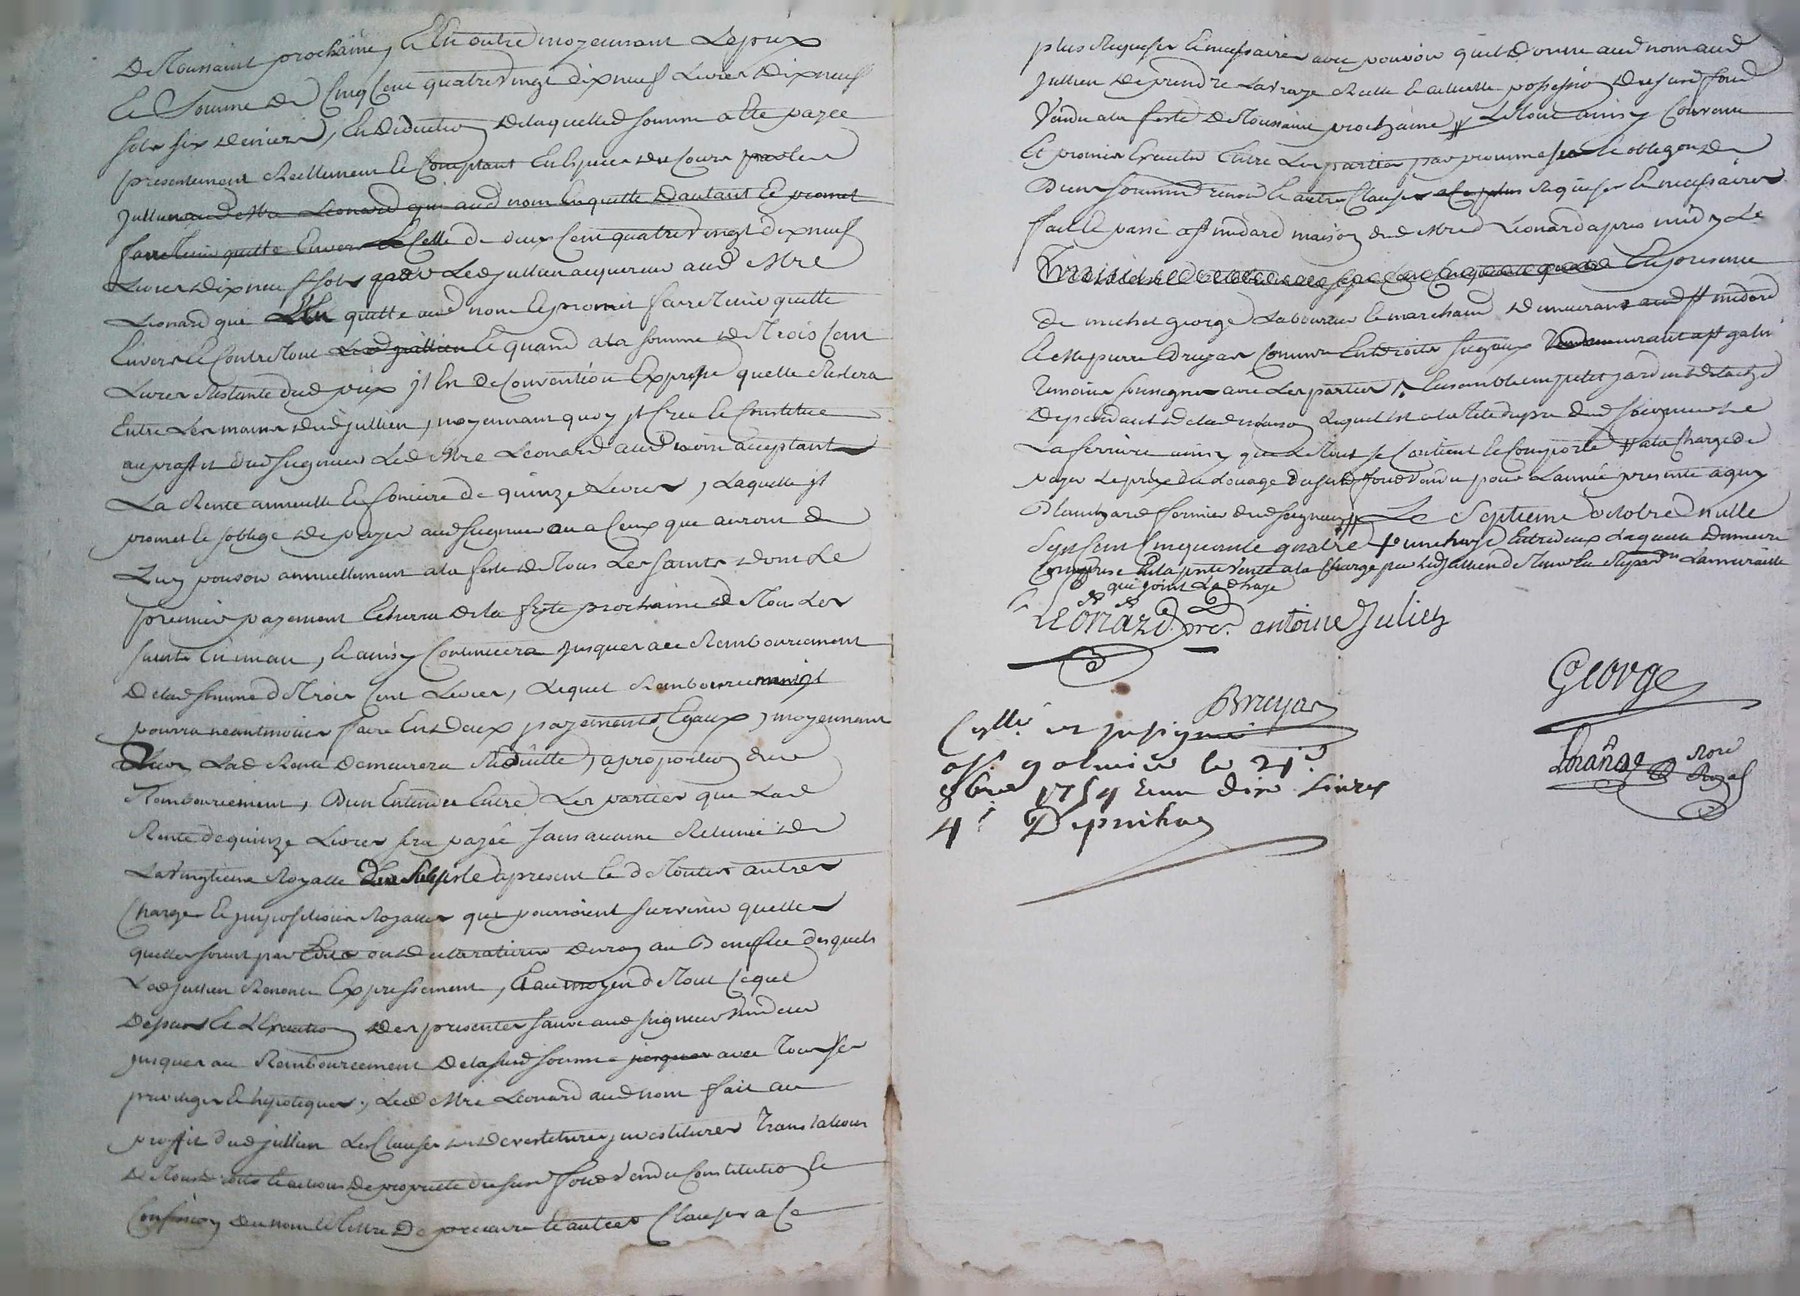 De Toussaint prochaine, Et En outre moyennant Le prix
Et Somme de Cinq Cent quatre vingt dix neuf Livres dix neuf
sols six deniers, En Deduction de laquelle somme a Eté payée
presentement Reellement Et Comptant En Especes du Cours par led
Jullien aud Mre Leonard qui aud nom Enquitte Dautant Et promet
faire tenir quitte Envers Celle de deux Cent quatre vingt dix neuf
Livres dix neuf sols Led Jullien acquereur aud Mre
Leonard qui L'En quitte aud nom Et promet faire tenir quitte
Envers Et Contre tous Et quand a la somme de Trois Cent
Livres Restante dud prix jl Est de Convention Expresse quelle Restera
Entre Les mains dud Jullien, moyennant quoy jl Cree Et Constitue
au proffit dud Seigneur Led Mre Leonard acceptant
La Rente annuelle Et fonciere de quinze Livres, Laquelle jl
promet Et soblige de payer aud Seigneur ou a Ceux que auront de
Luy pouvoir annuellement a la feste de Tous Les Saints dont Le
premier payement Echerra de la feste prochaine de Tous Les
Saints En un an, Et ainsy Continuera jusques au Remboursement
de lad somme de Trois Cent Livres, Lequel Remboursement
pourra neantmoins faire En deux payements Egaux, moyennant
quoy Lad Rente demeurera Reduitte, a proportion dud
Remboursement, Bien Entendu Entre Les parties que Lad
Rente de quinze Livres sera payée sans aucune Retenue de
La vingtieme Royalle a present Et de Toutes autres
Charges Et jmpositions Royalles que pourroient survenir quelles
quelles soient par Edits ou declarations du roy au Benefice desquels
Led Jullien Renonce Expressement, Et au moyen de Tout Ce que
dessus Et L'Execution des presentes sauve aud Seigneur Vendeur
jusques au Remboursement de la sud somme avec Tous ses
privileges Et hipoteques, Led Mre Leonard aud nom fait au
proffit dud Jullien Les Clauses de devestitures jnvestitures Translations
de Tous droits Et actions de proprieté du sud fond vendu Constitution Et
Confession du nom Et Titre De precaire Et autres Clauses a Ce
plus Requises Et necessaires avec pouvoir quil donne aud nom aud
Jullien de prendre La vraye Reelle Et actuelle possession du susd fond
Vendu a la feste de Toussaint prochaine Le tout ainsy Convenu
Et promis Executer Entre Les parties par promesses Et obligons de
Biens soumissions renonons Et autres Clauses Requises Et necessaires
fait Et passé a St medard maison dud Mre Leonard apres midy Le
En presence
de michel george Laboureur Et marchand demeurant aud St medard
Et Me pierre Bruyas Commis En Droits Seigaux demeurant a St galmi
Temoins soussignés avec Les parties Ensemble un petit jardin detaché
dependant de lad maison Lequel Est a La Tête du pré dud
La ferriere ainsy que Le tout se Contient Et Comporte a la Charge de
payer Le prix du Louage du susd fond vendu pour Lannée presente a guy
Blanchard fermier dud seigneur Le Septieme octobre mille
Sept Cent Cinquante quatre Entre deux Laquelle Demeure
Comprise En la pnte vente a la Charge par led Jullien de Tenir En Reparon La muraille
qui joint Lad haye
Leonard pre. antoine Julien
George
Bruyas
Collé et jnsigné
a St galmier le 21e
8bre 1754 Reçu dix Livres
4s Depuihac
Thoânne Nore Royal